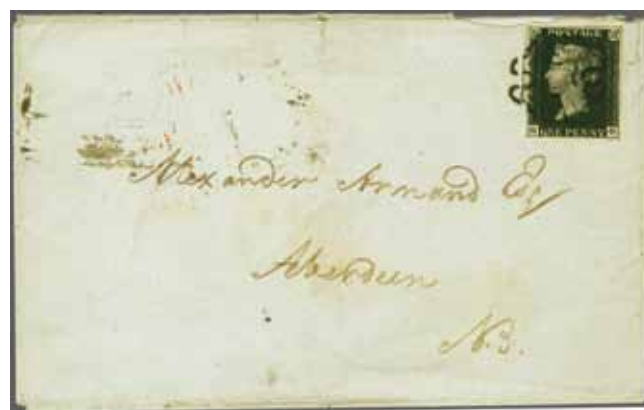 POSTAGE
ONE PENNY
Alexander Armand Esq
Aberdeen
N.B.